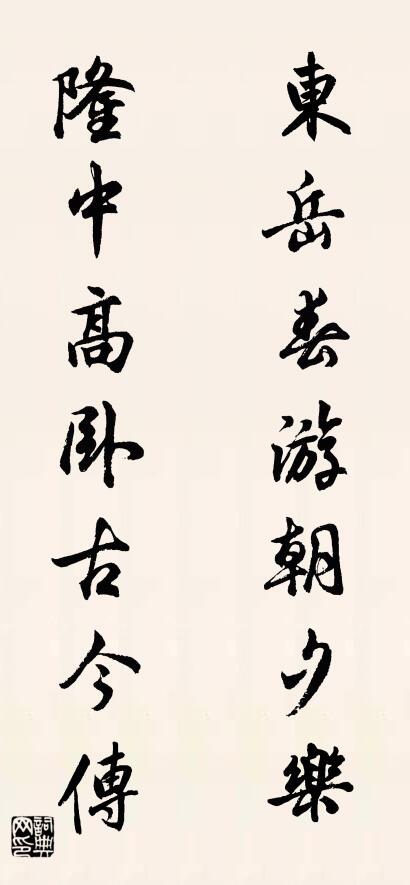 東岳春游朝夕樂
隆中高卧古今傳
詞典网印